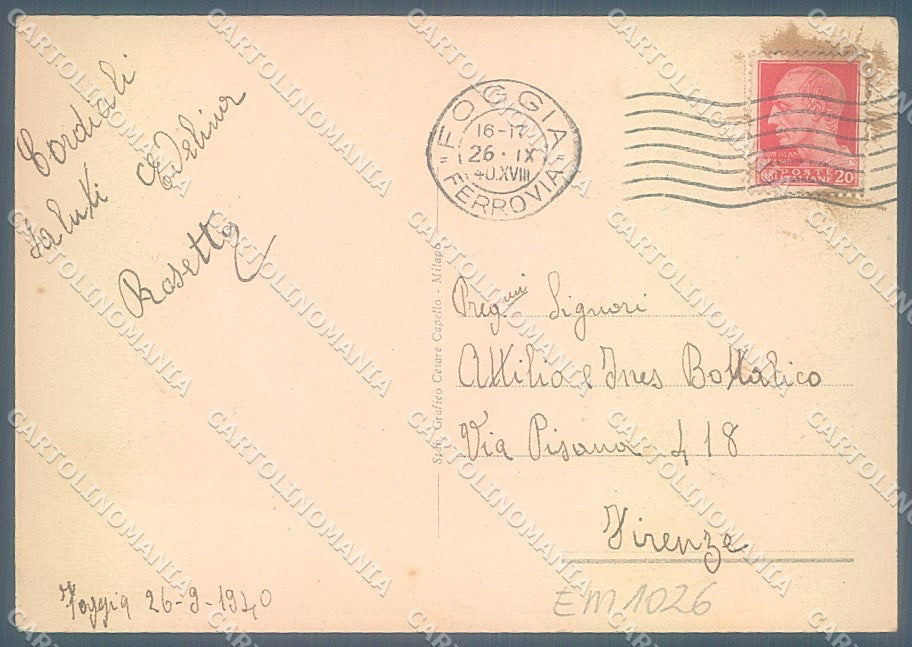 Cordiali
Saluti Edelina
Rosetta
Foggia 26-9-1940
FOGGIA
16-17
26·IX
40.XVIII
FERROVIA
POSTE
20
Stab. Grafico Cesare Capello - Milano
Preg.mi Signori
Attilio e Ines Bottalico
Via Pisana 418
Firenze
EM1026
CARTOLINOMANIA